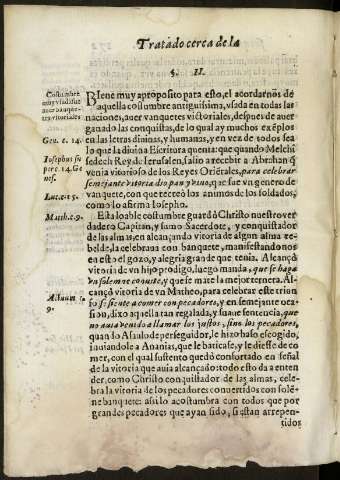 Tratado cerca de la
§. II.
Costumbre
muy vsada fue
auer banque-
tes vitoriales
Gen. c. 14.
Iosephus su
per c. 14. Ge
nes.
Luc. c. 15.
Matth. c. 9.
9.
BIene muy a proposito para esto, el acordarnos de
aquella costumbre antiquissima, vsada en todas las
naciones, auer vanquetes victoriales, despues de auer
ganado las conquistas, de lo qual ay muchos exẽplos
en las letras diuinas, y humanas, y en vez de todos sea
lo que la diuina Escritura cuenta: que quando Melchi
sedech Rey de Ierusalen, salio a recebir a Abrahan q̃
venia vitorioso de los Reyes Oriẽtales, para celebrar
semejante vitoria dio pan y vino, que fue vn genero de
vanquete, con que recreò los animos de los soldados,
como lo afirma Iosepho.
Esta loable costumbre guardò Christo nuestro ver
dadero Capitan, y sumo Sacerdote, y conquistador
de las almas, en alcançando vitoria de algun alma re
belde, la celebraua con banquete, manifestandonos
en esto el gozo, y alegria grande que tenia. Alcançò
vitoria de vn hijo prodigo, luego manda, que se haga
vn solemne conuite, y que se mate la mejor ternera. Al-
cançò vitoria de vn Matheo, para celebrar este triun
fo se siente a comer con pecadores, y en semejante oca
sion, dixo aquella tan regalada, y suaue sentencia, que
no auia venido a llamar los justos, sino los pecadores,
quando a Saulo de perseguidor, le hizo hijo escogido,
inuiandole a Ananias, que le bautizase, y le diesse de co
mer, con el qual sustento quedò confortado en señal
de la vitoria que auia alcançado: todo esto da a enten
der, como Christo conquistador de las almas, cele-
bra la vitoria de los pecadores conuertidos con solẽ-
ne banquete: assi lo acostumbra con todos que por
grandes pecadores que ayan sido, si estan arrepen-
tidos